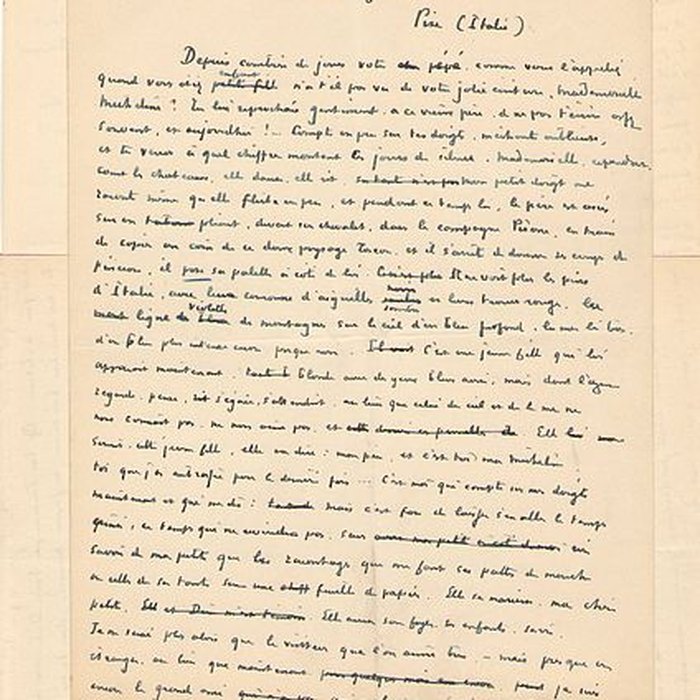 Pise (Italie)
Depuis combien de jours votre pépé, comme vous l'appeliez
quand vous étiez petite fille enfant n'a t'il pas vu de votre jolie écriture, Mademoiselle
Micheline ? Tu lui reprochais gentiment, à ce vieux père, de ne pas t'écrire assez
souvent, et aujourd'hui !... Compte un peu sur tes doigts, méchante oublieuse,
et tu verras à quel chiffre montent les jours de silence. Mademoiselle, cependant,
petit doigt me
et pendant ce temps là, le père est assis
sur un pliant, devant son chevalet, dans la campagne Pisane, en train
de copier un coin de ce doux paysage Toscan, et il s'arrête de donner ses coups de
pinceau, il pose sa palette à côté de lui. Il ne voit plus les pins
d'Italie, avec leur couronne d'aiguilles sombres et leurs troncs rouges, la
ligne violette de montagnes sur le ciel d'un bleu profond, la mer là bas,
d'un bleu plus intense encore, presque noir. C'est une jeune fille qui lui
apparaît maintenant, blonde avec des yeux bleus aussi, mais dont l'azur
regarde, pense, s'égaie, s'attendrit, au lieu que celui du ciel et de la mer ne
nous connaît pas, ne nous aime pas, Elle
sourit, cette jeune fille, elle me dit : mon père, et c'est toi, ma Micheline,
toi que j'ai embrassée pour la dernière fois ... C'est moi qui compte sur mes doigts
maintenant et qui me dis : mais c'est fou de laisser s'en aller le temps
ainsi, ce temps qui ne reviendra pas, sans rien
savoir de ma petite que les
feuille de papier. Elle se mariera, ma chère
petite. Elle aura son foyer, ses enfants,
Je ne serai plus alors que le visiteur que l'on aime bien – mais presque un
étranger, au lieu que maintenant je suis
encore le grand ami